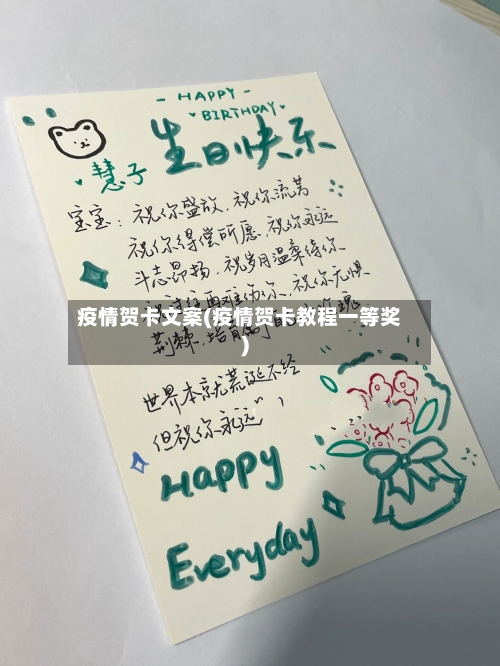 - HAPPY -
BIRTHDAY
生日快乐
慧子
宝宝：祝你盛放，祝你流芳
祝你得偿所愿，祝你永远
斗志昂扬，祝岁月温柔待你
祝你无惧
疫情贺卡文案(疫情贺卡教程一等奖
)
荆棘
世界本就荒诞不经
但祝你永远
Happy
Everyday